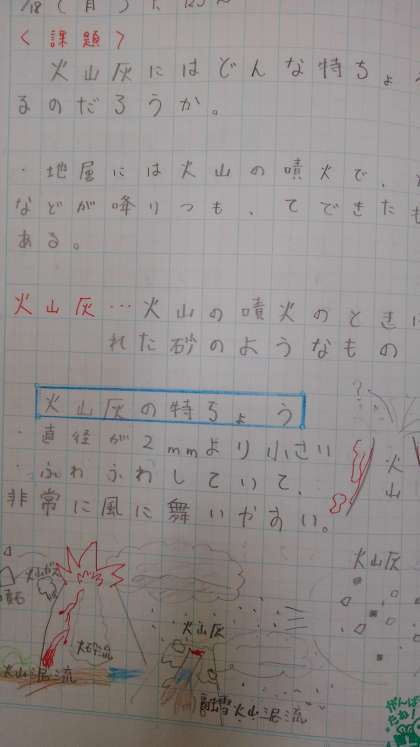 〈課題〉
火山灰にはどんな特ちょ
るのだろうか。
・地層には火山の噴火で、
などが降りつも、てできたも
ある。
火山灰…火山の噴火のとき
れた砂のようなもの
火山灰の特ちょう
・直径が2mmより小さい
・ふわふわしていて、
非常に風に舞いやすい。
火山
火山灰
火山灰
火山泥流
融雪火山泥流
がんばったね!